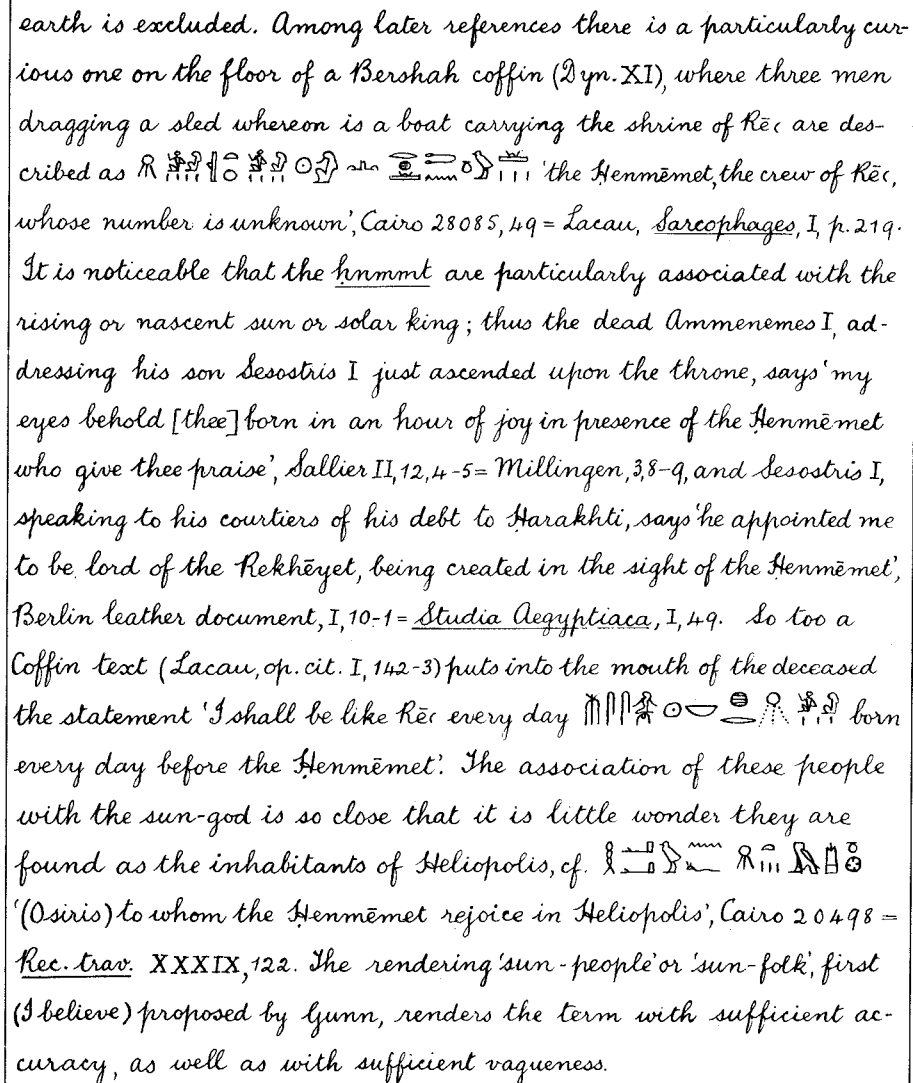 earth is excluded. Among later references there is a particularly cur-
ious one on the floor of a Bershah coffin (Dyn. XI), where three men
dragging a sled whereon is a boat carrying the shrine of Rēꜥ are des-
cribed as 'the Ḥenmēmet, the crew of Rēꜥ,
whose number is unknown', Cairo 28085, 49 = Lacau, Sarcophages, I, p. 219.
It is noticeable that the ḥnmmt are particularly associated with the
rising or nascent sun or solar king; thus the dead Ammenemes I, ad-
dressing his son Sesostris I just ascended upon the throne, says 'my
eyes behold [thee] born in an hour of joy in presence of the Ḥenmēmet
who give thee praise', Sallier II, 12, 4-5 = Millingen, 3, 8-9, and Sesostris I,
speaking to his courtiers of his debt to Ḥarakhti, says 'he appointed me
to be lord of the Rekhēyet, being created in the sight of the Ḥenmēmet',
Berlin leather document, I, 10-1 = Studia Aegyptiaca, I, 49. So too a
Coffin text (Lacau, op. cit. I, 142-3) puts into the mouth of the deceased
the statement 'I shall be like Rēꜥ every day born
every day before the Ḥenmēmet'. The association of these people
with the sun-god is so close that it is little wonder they are
found as the inhabitants of Heliopolis, cf.
'(Osiris) to whom the Ḥenmēmet rejoice in Heliopolis', Cairo 20498 =
Rec. trav. XXXIX, 122. The rendering 'sun-people' or 'sun-folk', first
(I believe) proposed by Gunn, renders the term with sufficient ac-
curacy, as well as with sufficient vagueness.